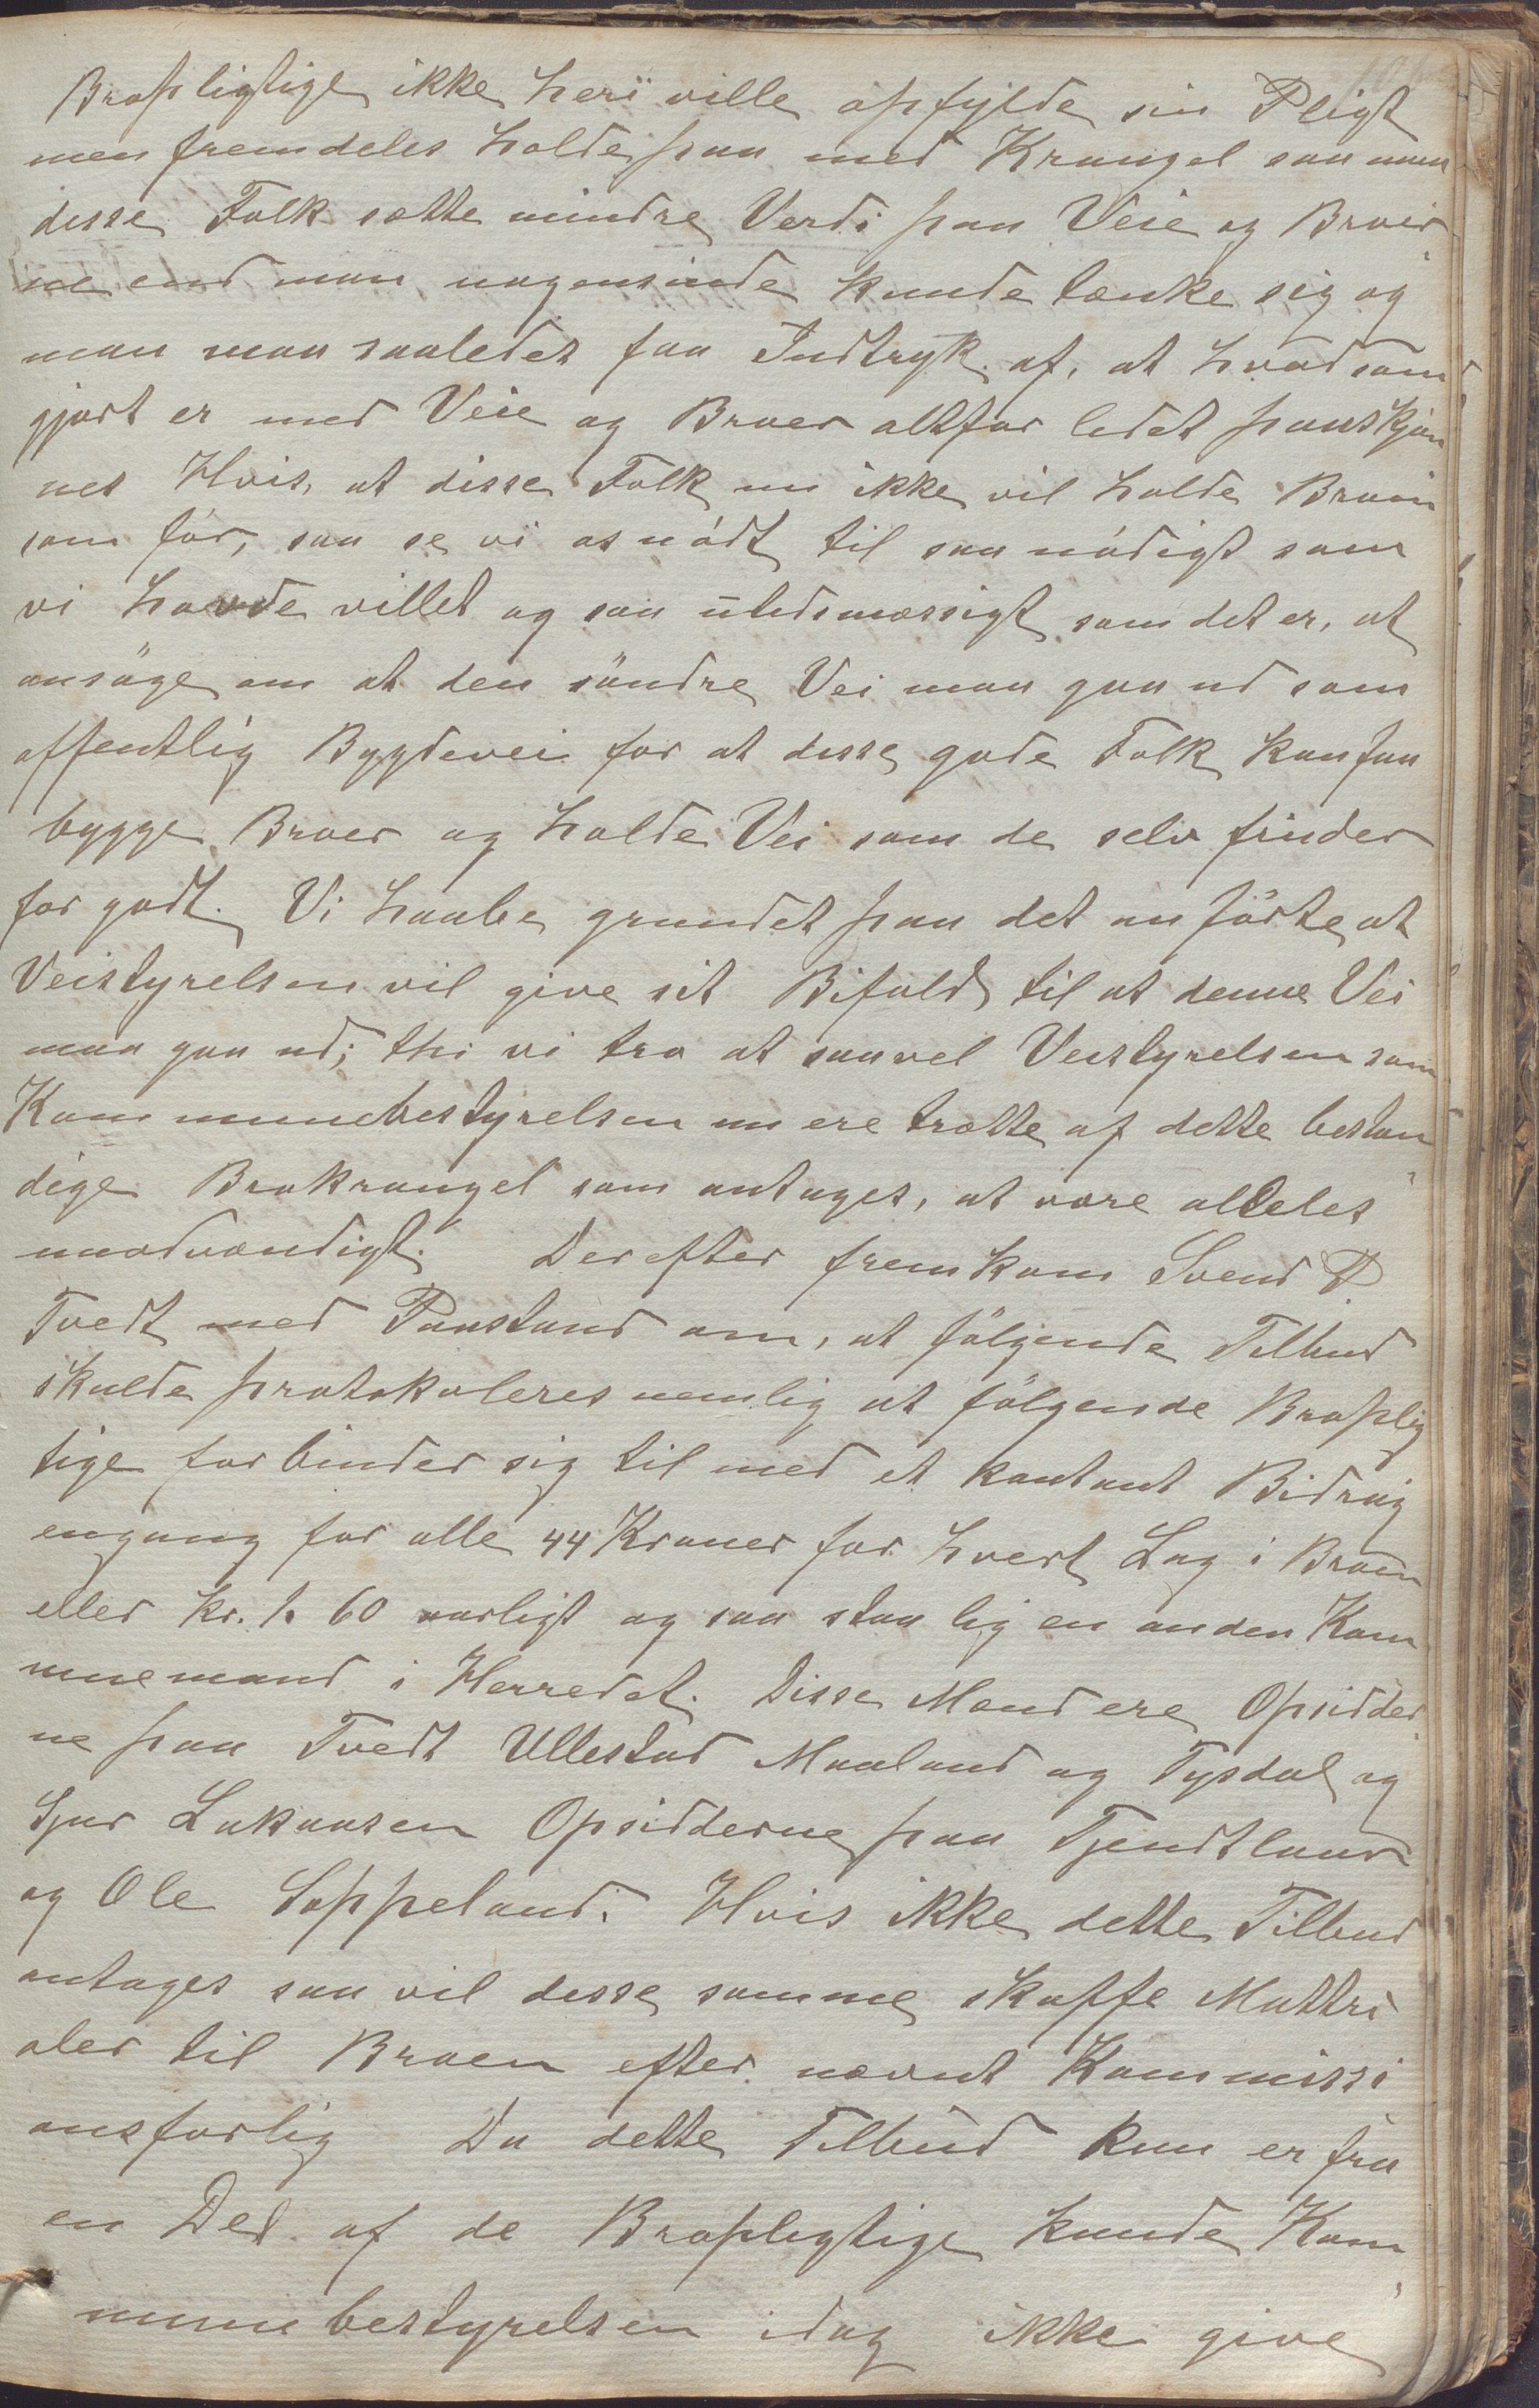 Bropligtige ikke heri ville opfylde sin Pligt
men fremdeles holde paa med Krangel saa maa
disse Folk sætte mindre Verdi paa Veie og Broer
ne end man nogensinde kunde tænke sig og
man maa saaledes faa Indtryk af, at hvad som
gjort er med Veie og Broer altfor lidet paaskjøn
nes Hvis, at disse Folk nu ikke vil holde Broen
som før, saa se vi os nødt til saa nødigt som
vi havde villet og saa utidsmæssigt som det er, at
ansøge om at den søndre Vei maa gaa ud som
offentlig Bygdevei for at disse gode Folk kan faa
bygge Broer og holde Vei som de selv finder
for godt. Vi haabe grundet paa det anførte, at
Veistyrelsen vil give sit Bifald til at denne Vei
maa gaa ud; thi vi tro at saavel Veistyrelsen som
Kommunebestyrelsen nu ere trætte af dette bestan
dige Brokrangel som antages, at være alldeles
unødvændigt. Derefter fremkom Svend P.
Tvedt med Paastand om, at følgende Tilbud
skulde protokoleres nemlig at følgende Broplig
tige forbinder sig til med et kontant Bidrag
engang for alle 44 Kroner for hvert Lag i Broen
eller kr. 1. 60 aarligt og saa staa lig en anden Kom
munemand i Herredet. Disse Mænd ere Opsidder
ne paa Tvedt Ullestad Maaland og Tysdal og
Sjur Lakaasen Opsidderne paa Tjendtland
og Ole Soppeland. Hvis ikke dette Tilbud
antages saa vil disse samme skaffe Mattri
aler til Broen efter nævnt Kommissi
onsforlig Da dette Tilbud kun er fra
en Del af de Bropligtige kunde Kom
munebestyrelsen idag ikke give